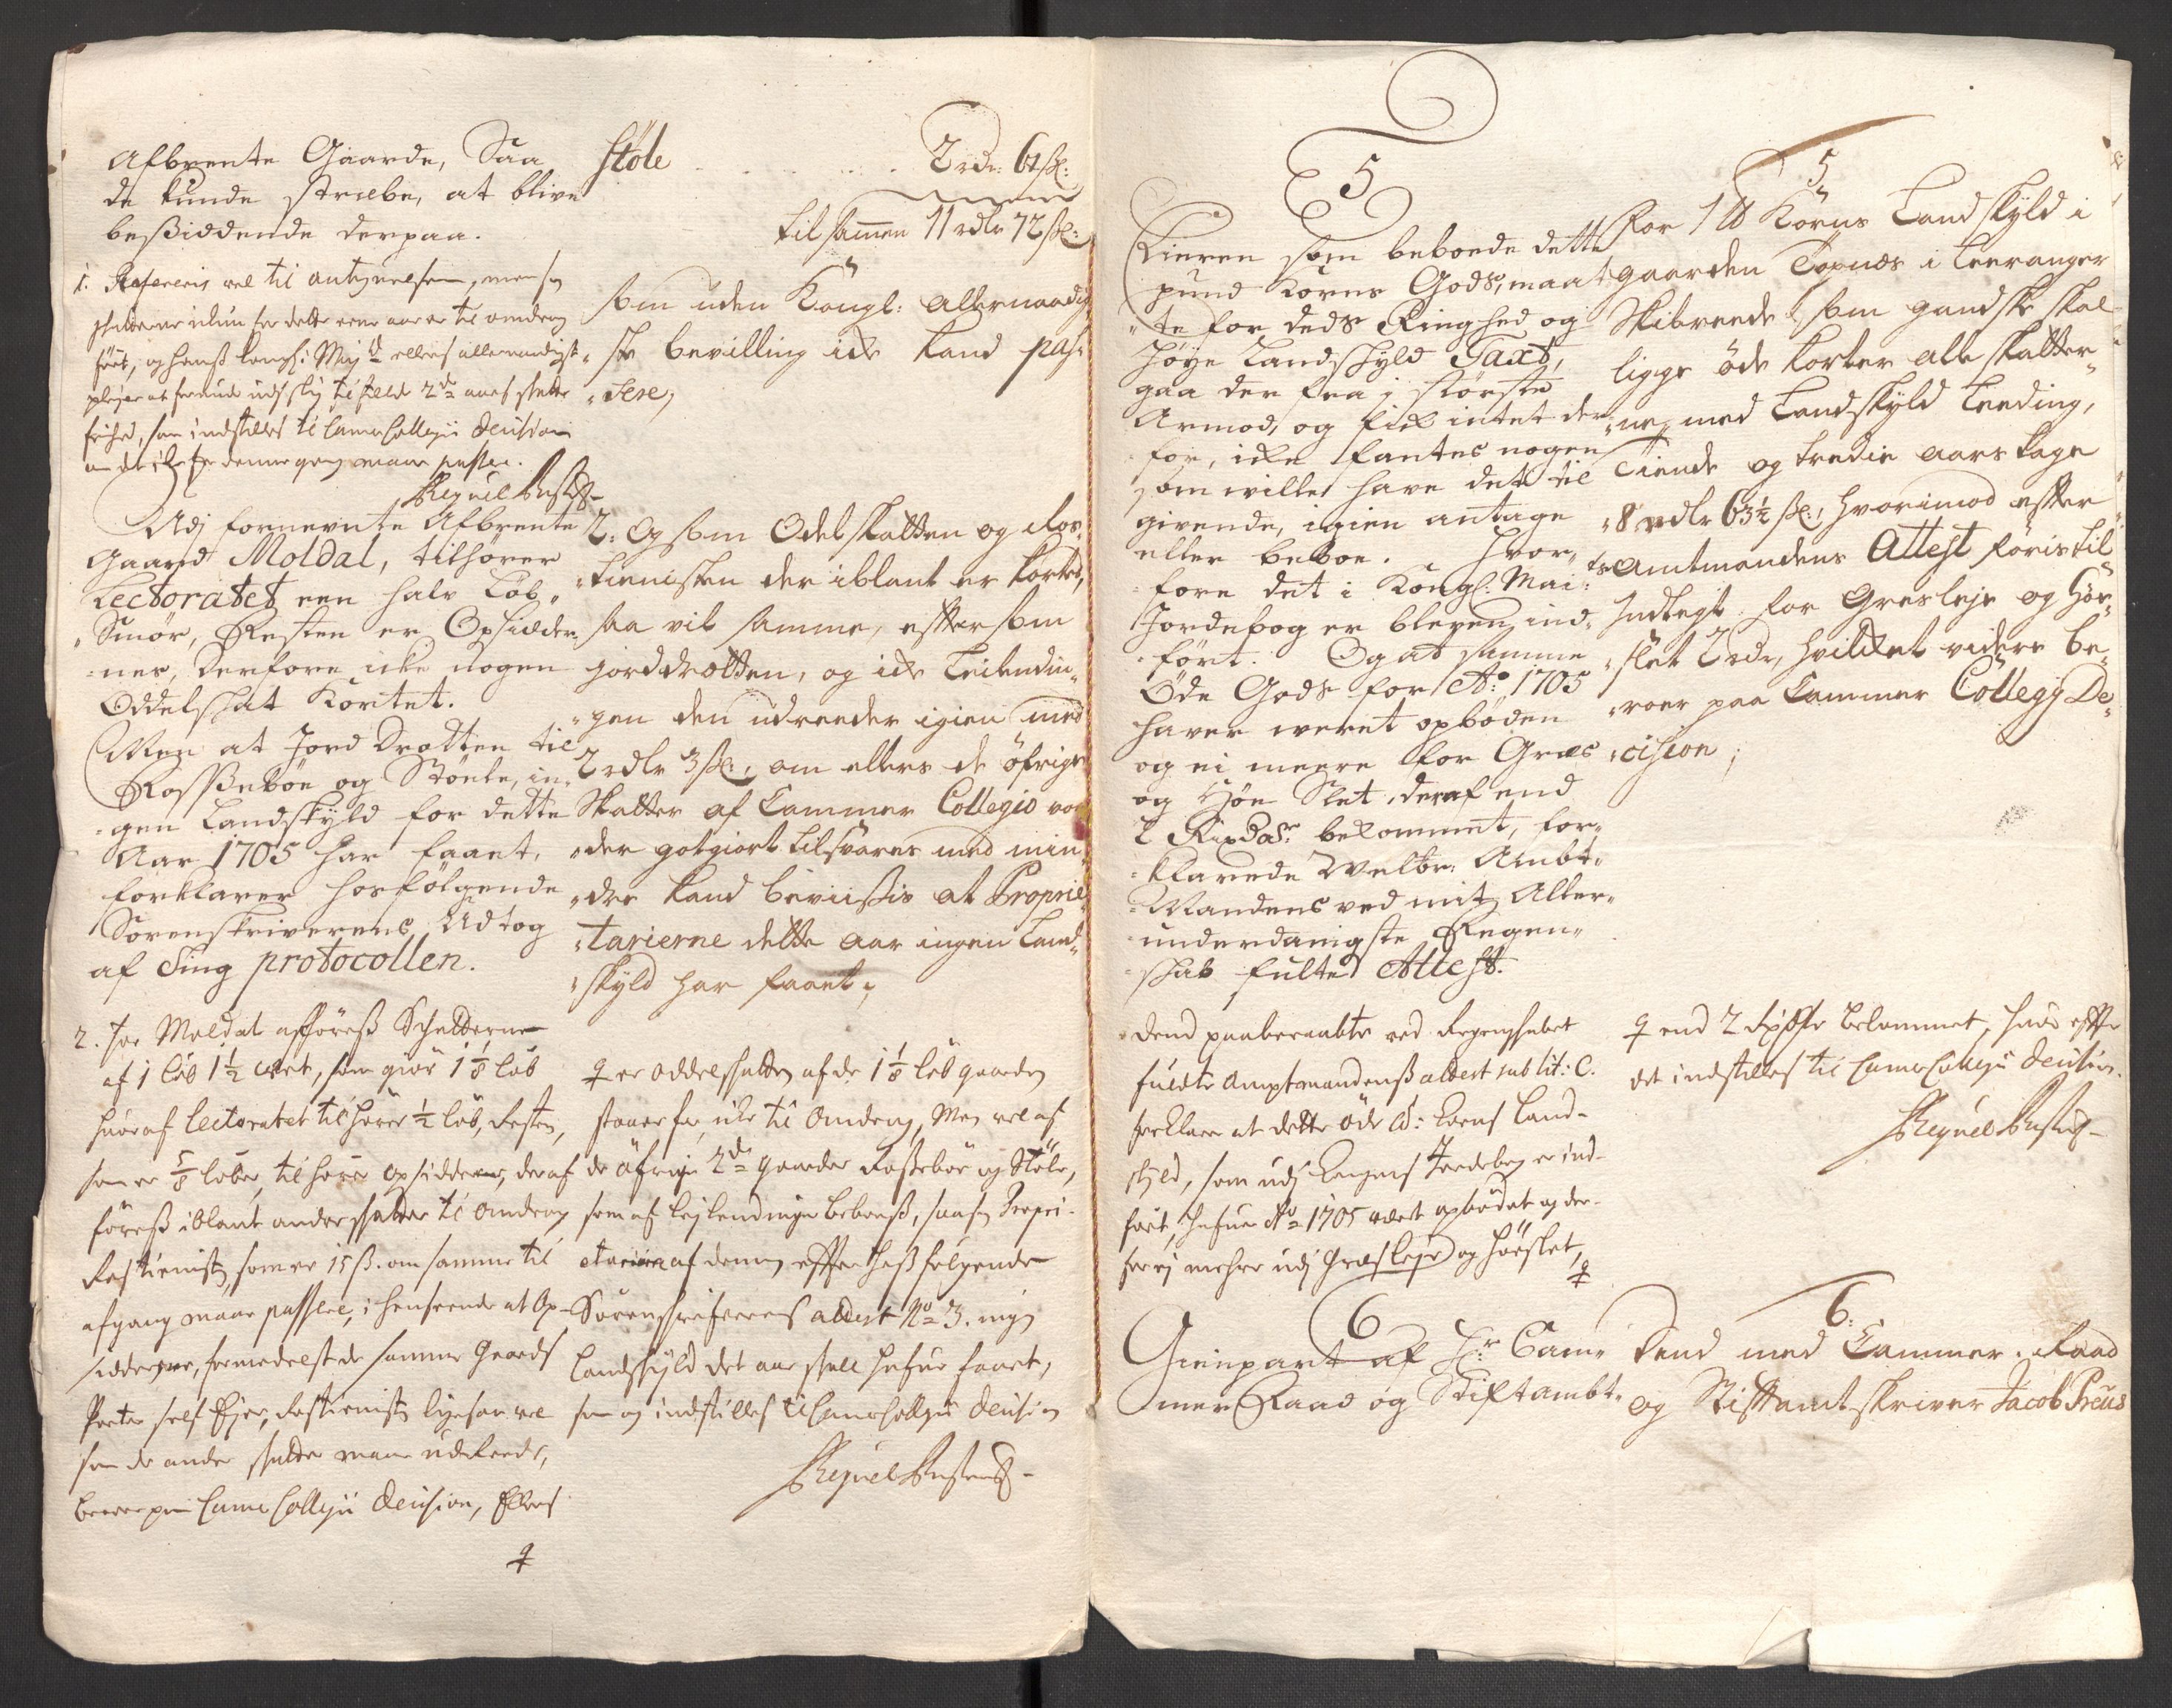 Afbrente Gaarde, Saa
de kunde stræbe, at blive
beßiddende derpaa.
1. Refereris vel til antegnelsen, men som
skatterne inlun for dette eene aar er til omdrag
ført, og hans Kongl: May:t ellers allernaadigst
pleyer at forunde udj slig tilfelde 2de aars skatte
frihed, som indstilles til Camer Collegii Decision
om det icke for denne gang maae passere.
Udj fornevnte Afbrente
Gaard Moldal, tilhører
Lectoratet een halv Løb
Smør, Resten er Opsidder-
nes, derfore icke nogen
Oddelskat Kortet.
Men at Jord Drotten til
Roßebøe og Støele, in-
gen Landskyld for dette
Aar 1705 har faaet,
forklarer hosfølgende
Sorenskriverens Udtog
af Ting protocollen.
2. For Moldal afføreß Schatterne
af 1 løb 1½ , som giør 1⅛ løb
huoraf lectoratet tilhører ½ løb, Resten,
som er ⅝ løber, tilhører opsidderne, deraf
føreß iblant andre skatter til omdrag
Rostienisten, som er 15 ß. om samme til
afgang maae passere, i henseende at Op-
sidderne, formedelst de samme Gaards
Parter self Ejer, Rostienisten ligesom vel
som de andre skatter maae udreede,
beroer paa Camer Collegii Decision, Ellers
støle . . . 2 rdr: 61 ß:
tilsamen 11 rdlr 72 ß:
som uden Kongl: allernaadig
ste bevilling icke kand pas-
sere,
2: Og som Odelskatten og Ros-
tienisten der iblant er kortet,
saa vil samme, eftersom
jorddrotten, og icke Leilendin-
gen den udreeder igien med
2 rdlr 3 ß:, om ellers de øfrige
Skatter af Cammer Collegio vor-
der gotgiort tilsvares med min-
dre kand beviißis at Proprie-
tarierne dette aar ingen Land-
skyld har faaet;
er oddelskatten af de 1⅛ løb gaarden
staaer for, icke til omdrag, Men vel af
de øfrige 2de gaarder Roßebøe og Støle,
som af leylendinge beboeß, saasom Propri-
etarierne af denne efter hoßfølgende
Sorenskrifverens attest No 3. ingen
Landskyld det aar skall hafue faaet,
som og indstilles til Camer Collegii Decision
5
Eieren som beboede dette
pund Korns Gods, maat-
te for deds Ringhed og
høye Landskyld Taxt,
gaa der fra i største
Armod, og fick intet der
for, icke fantes nogen
som wille have det til
givende, igien antage
eller beboe. Hvor-
fore det i Kongl: Mai:ts
Jordebog er bleven ind-
ført. Og at samme
Øde Gods for Ao: 1705
haver weret opbøden
og ei meere for Græs
og Høe Slet, deraf end
2 Rixdlr: bekommet, for-
klarede Welbr: Ambt-
Mandens ved mit Aller-
underdanigste Regen-
skab fulte Attest.
dend paaberaabte ved Regenskabet
fuldte Amptmandenß attest sub lit: C.
forklarer at dette øde : Korns Land-
skyld, som udj Kongens Jordebog er ind-
ført, hafuer Ao 1705 veret opbødet og der-
for ej mehre udj Græsleje og høeslet,
6
Gienpart af Hr Cam-
mer Raad og Stiftambt-
5
For 1 ℔ Korns Landskyld i
gaarden Tøpnæs i Leeranger
Skibreede, som gandske skal
ligge øde korter alle skatter-
ne, med Landskyld Leeding,
Tiende og tredie aars tage
8 rdlr 63½ ß:, hvorimod effter
Amtmandens Attest føris til
Indtegt for Græsleje og Høe-
slet 2 rdr, hvilcket videre be-
roer paa Cammer Collegj De-
cision;
end 2 Rixdlr bekommet, huor effter
det indstilles til Camer Collegii Decision.
6:
dend med Cammer-Raad
og Stiftamtskriver Jacob Preus